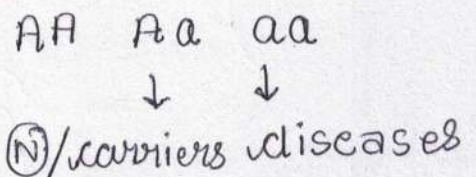 AA Aa aa
↓ ↓
Ⓝ/carriers diseases